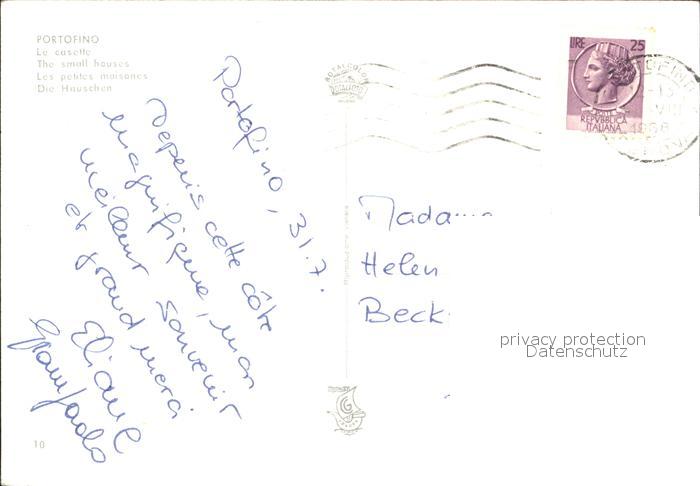 PORTOFINO
Le casette
The small houses
Les petites maisones
Die Hauschen
Portofino, 31.7.
Depuis cette côte
magnifique, mon
meilleur souvenir
et grand merci
Eliane
Gianpaolo
ROTALCOLOR
ROTALFOTO
MILANO
LIRE 25
REPVBBLICA
ITALIANA
1968
Mada....
Helen
Beck
privacy protection
Datenschutz
G
10